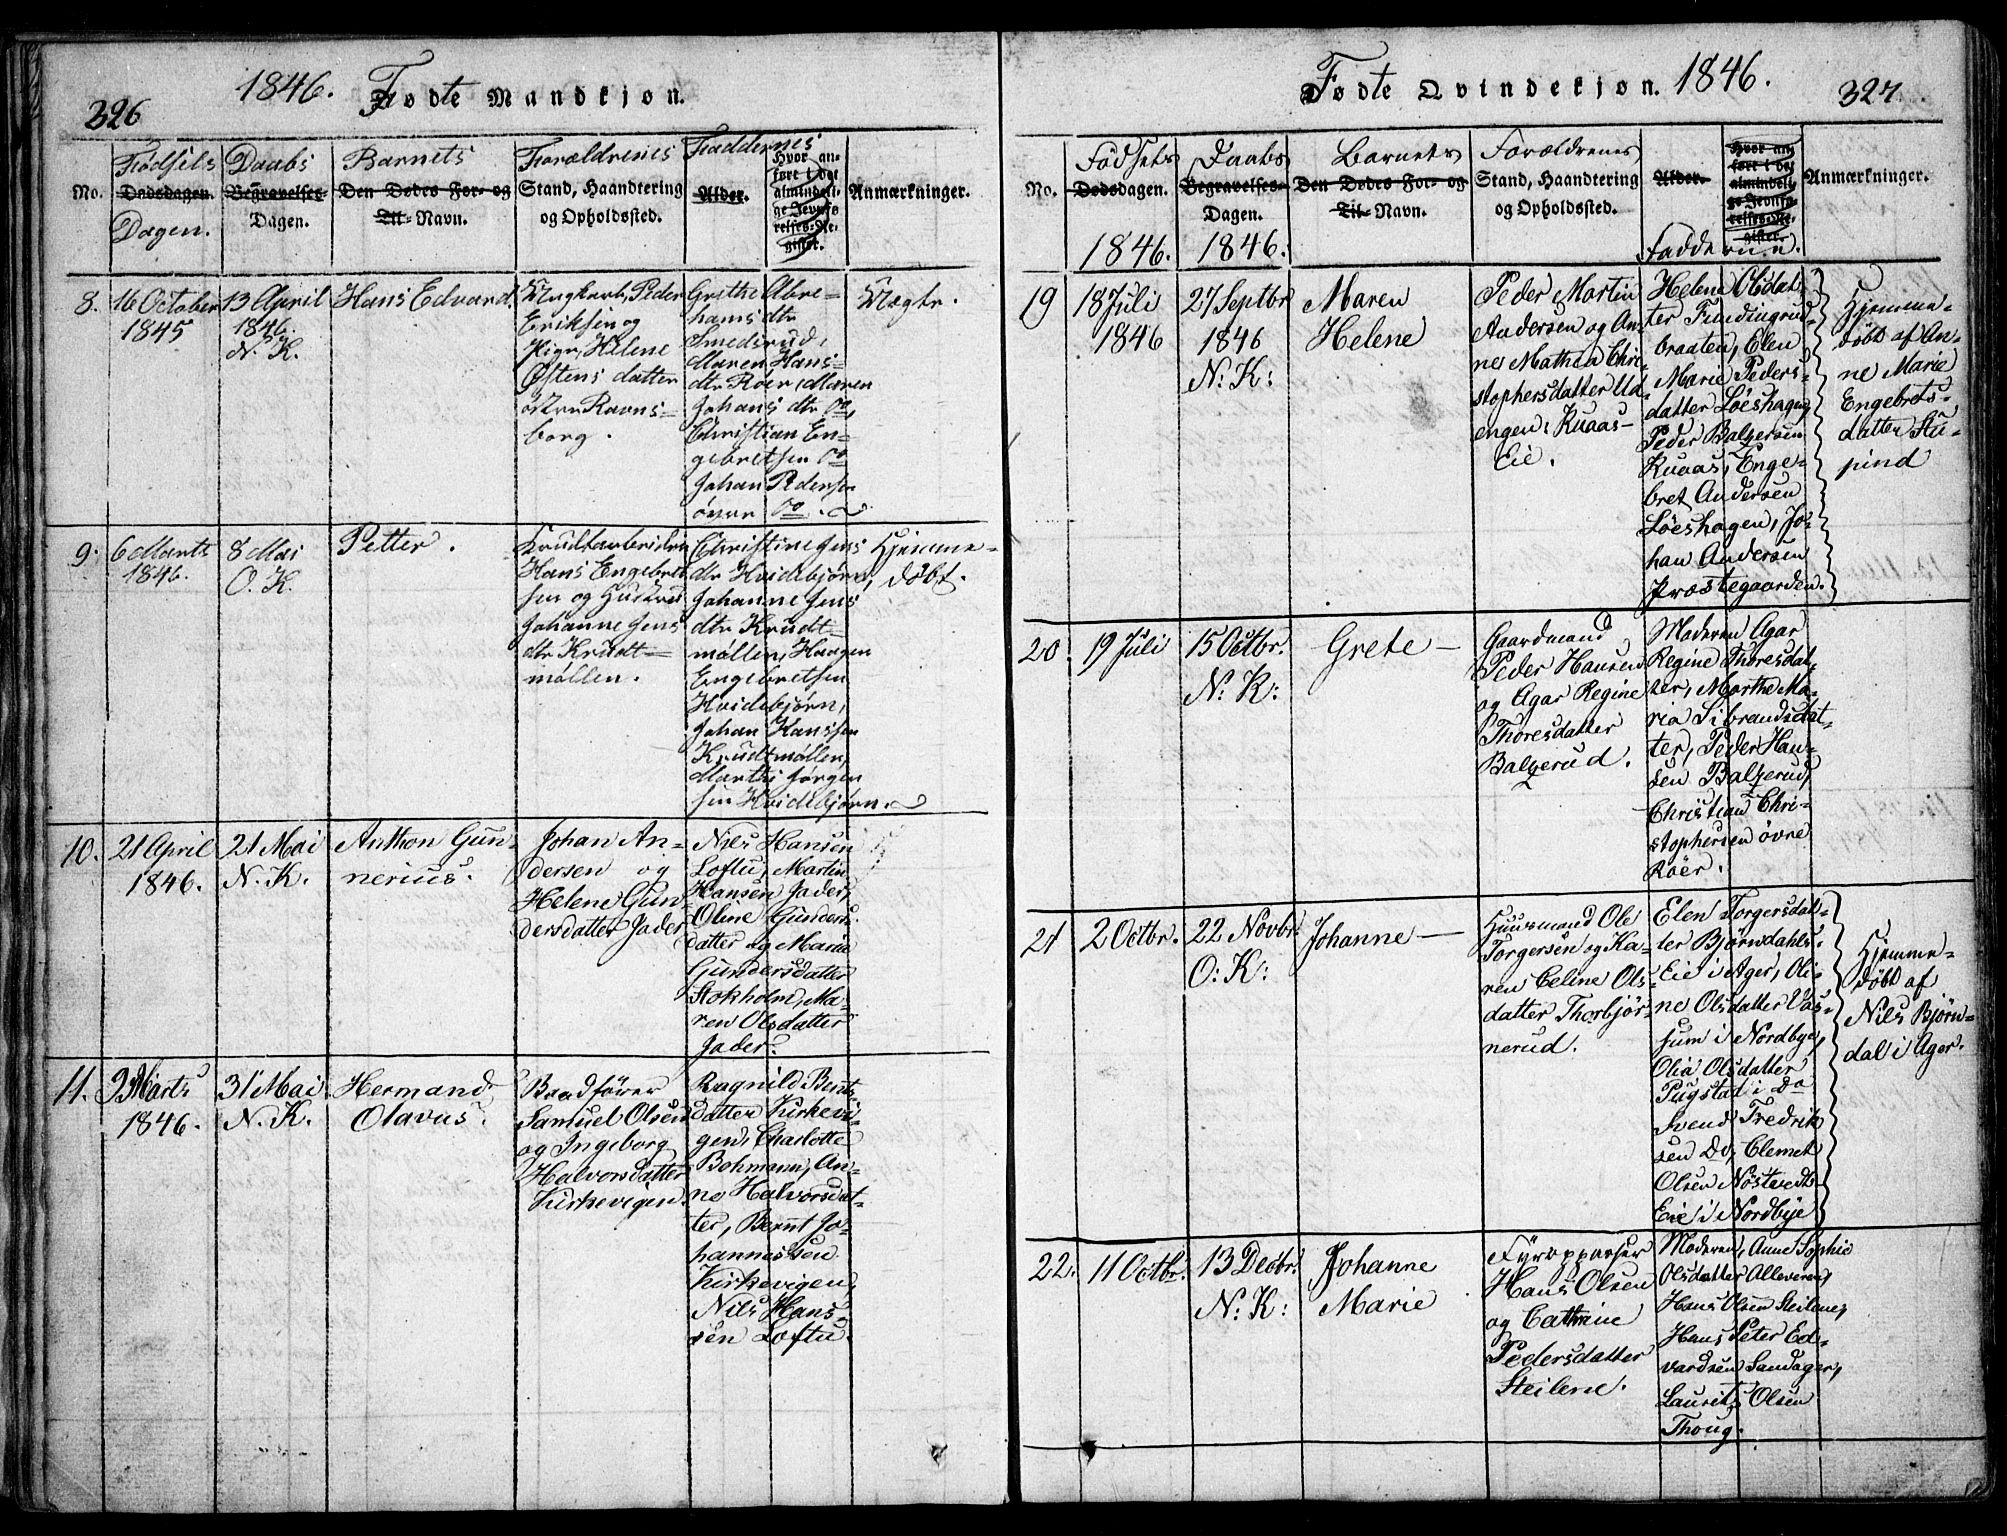 326
1846. Fødte Mandkjøn.
No.
Fødsels
Dødsdagen.
Dagen.
Daabs
Begravelses-
Dagen.
Barnets
Den Dødes For- og
Til-Navn.
Forældrenes
Stand, Haandtering
og Opholdssted.
Faddernes
Alder.
Hvor an-
ført i det
almindeli-
ge Jevnfø-
relses-Re-
gister.
Anmærkninger.
8.
16 October
1845
13 April
1846.
N. K.
Hans Edvard.
Ungkarl, Peder
Eriksen og
Pige, Helene
Østensdatter
østre Ravns-
borg.
Grethe Abra-
hamsdtr
Smedsrud,
Maren Hans-
dtr Røer, Maren
Johansdtr Do,
Christian En-
gebretsen Do
Johan Pedersen
øvre Do.
Uægte.
9.
6 Marts
1846.
8 Mai
O. K.
Petter.
Krudtarbeider
Hans Engebret-
sen og Hustru
Johanne Jens
dtr Krudt-
møllen.
Christine Jens
dtr Hvidebjørn,
Johanne Jens
dtr Krudt-
møllen, Haagen
Engebretsen
Hvidebjørn,
Johan Hanssen
Krudtmøllen,
Marthi Jørgen
sen Hvidebjørn.
Hjemme-
døbt.
10.
21 April
1846.
21 Mai
N. K.
Anthon Gun-
nerius.
Johan An-
dersen og
Helene Gun-
dersdatter Jader
Nils Hansen
Loftu, Martin
Hansen Jader,
Oline Gunders-
datter og Maria
Gundersdatter
Stokholm, Ma-
ren Olsdatter
Jader.
11.
9 Marts
1846.
31 Mai
N. K.
Hermand
Olavus.
Baadfører
Samuel Olsen
og Ingeborg
Halvorsdatter
Kirkevigen.
Ragnild Bents
datter Kirkevi-
gen, Charlotte
Bohmann, An-
ne Halvorsdat-
ter, Bernt Jo-
hannessen
Kirkevigen,
Nils Hans-
sen Loftu
Fødte Qvindekjøn. 1846.
327.
No.
Fødsels
Dødsdagen.
1846.
Daabs
Begravelses-
Dagen.
1846.
Barnets
Den Dødes For- og
Til-Navn.
Forældrenes
Stand, Haandtering
og Opholdssted.
Alder.
Hvor an-
ført i det
almindeli-
ge Jevnfø-
relses-Re-
gister.
Fadderne.
Anmærkninger.
19
18 Juli
1846
27 Septbr
1846
N: K:
Maren
Helene
Peder Martin
Andersen og An-
ne Mathea Chri-
stophersdatter Ud-
engen, Kuaas-
Eie.
Helene Olsdat-
ter Findingrud-
braaten, Elen
Marie Peders-
datter Løeshagen,
Peder Balzersen
Kuaas, Enge-
bret Andersen
Løeshagen, Jo-
han Andersen
Præstegaarden.
Hjemme-
døbt af An-
ne Marie
Engebrets-
datter Stu-
pind
20.
19 Juli
15 Octbr.
N: K:
Grete —
Gaardmand
Peder Hansen
og Agar Regine
Thoresdatter
Balzerud.
Moderen Agar
Regine Thoresdat-
ter, Marthe Ma-
ria Sibrandsdat-
ter, Peder Han-
sen Balzerud,
Christian Chri-
stophersen øvre
Røer.
21
2 Octbr.
22 Novbr.
O: K:
Johanne —
Huusmand Ole
Torgersen og Ka-
ren Celine Ols-
datter Thorbjør-
nerud.
Elen Torgersdat-
ter Bjørndahls-
Eie i Ager, Oli-
ne Olsdatter Vas-
sum i Nordbye,
Olia Olsdatter
Pugstad i Do
Svend Fredrik
sen Do, Clemet
Olsen Nøstvedt-
Eie i Nordbye
Hjemme-
døbt af
Nils Bjørn-
dal i Ager.
22.
11 Octbr.
13 Decbr.
N: K:
Johanne
Marie
Fyropparser
Hans Olsen
og Cathrine
Pedersdatter
Steilene.
Moderen, Anne Sophie
Olsdatter Alleveren,
Hans Olsen Steilene,
Hans Peter Ed-
vardsen Sandager,
Laurits Olsen
Thoug.